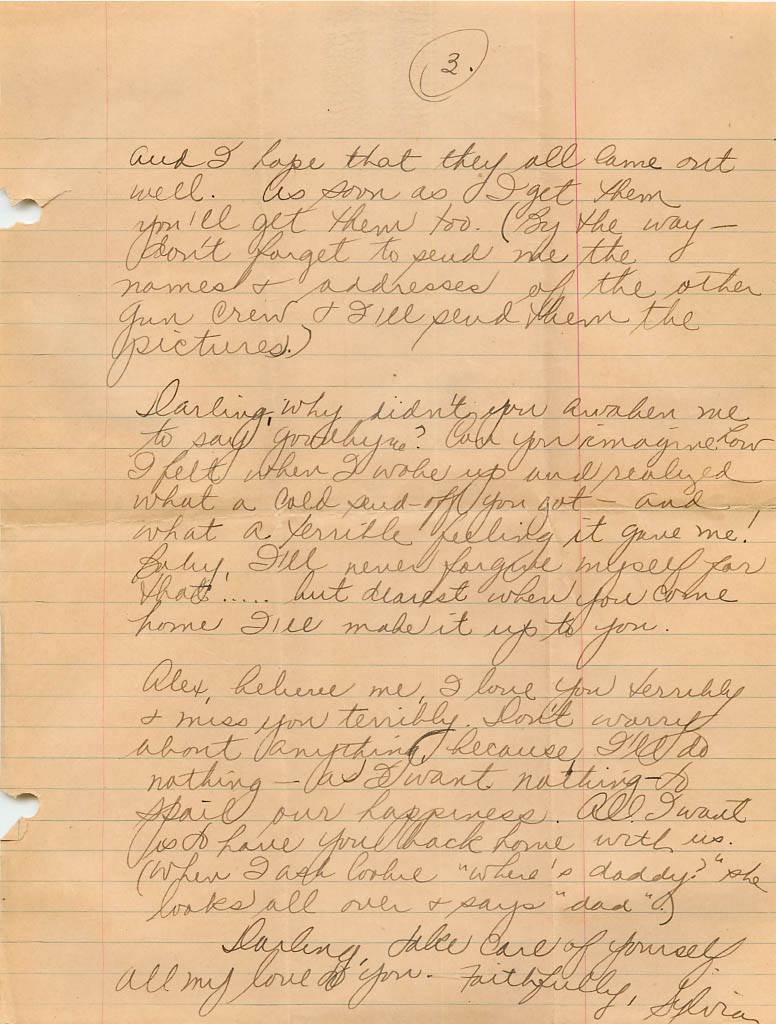 3.
and I hope that they all came out
well. As soon as I get them
you'll get them too. (By the way —
don't forget to send me the
names & addresses of the other
gun crew & I'll send them the
pictures.)
Darling, why didn't you awaken me
to say goodbye? Can you imagine how
I felt when I woke up and realized
what a cold send-off you got — and
what a terrible feeling it gave me!
Baby, I'll never forgive myself for
that ..... but dearest when you come
home I'll make it up to you.
Alex, believe me, I love you terribly
& miss you terribly. Don't worry
about anything, because I'll do
nothing — as I want nothing to
spoil our happiness. All I want
is to have you back home with us.
(When I ask Cookie "where's daddy?" she
looks all over & says "dad".)
Darling, take care of yourself
all my love to you. Faithfully, Sylvia